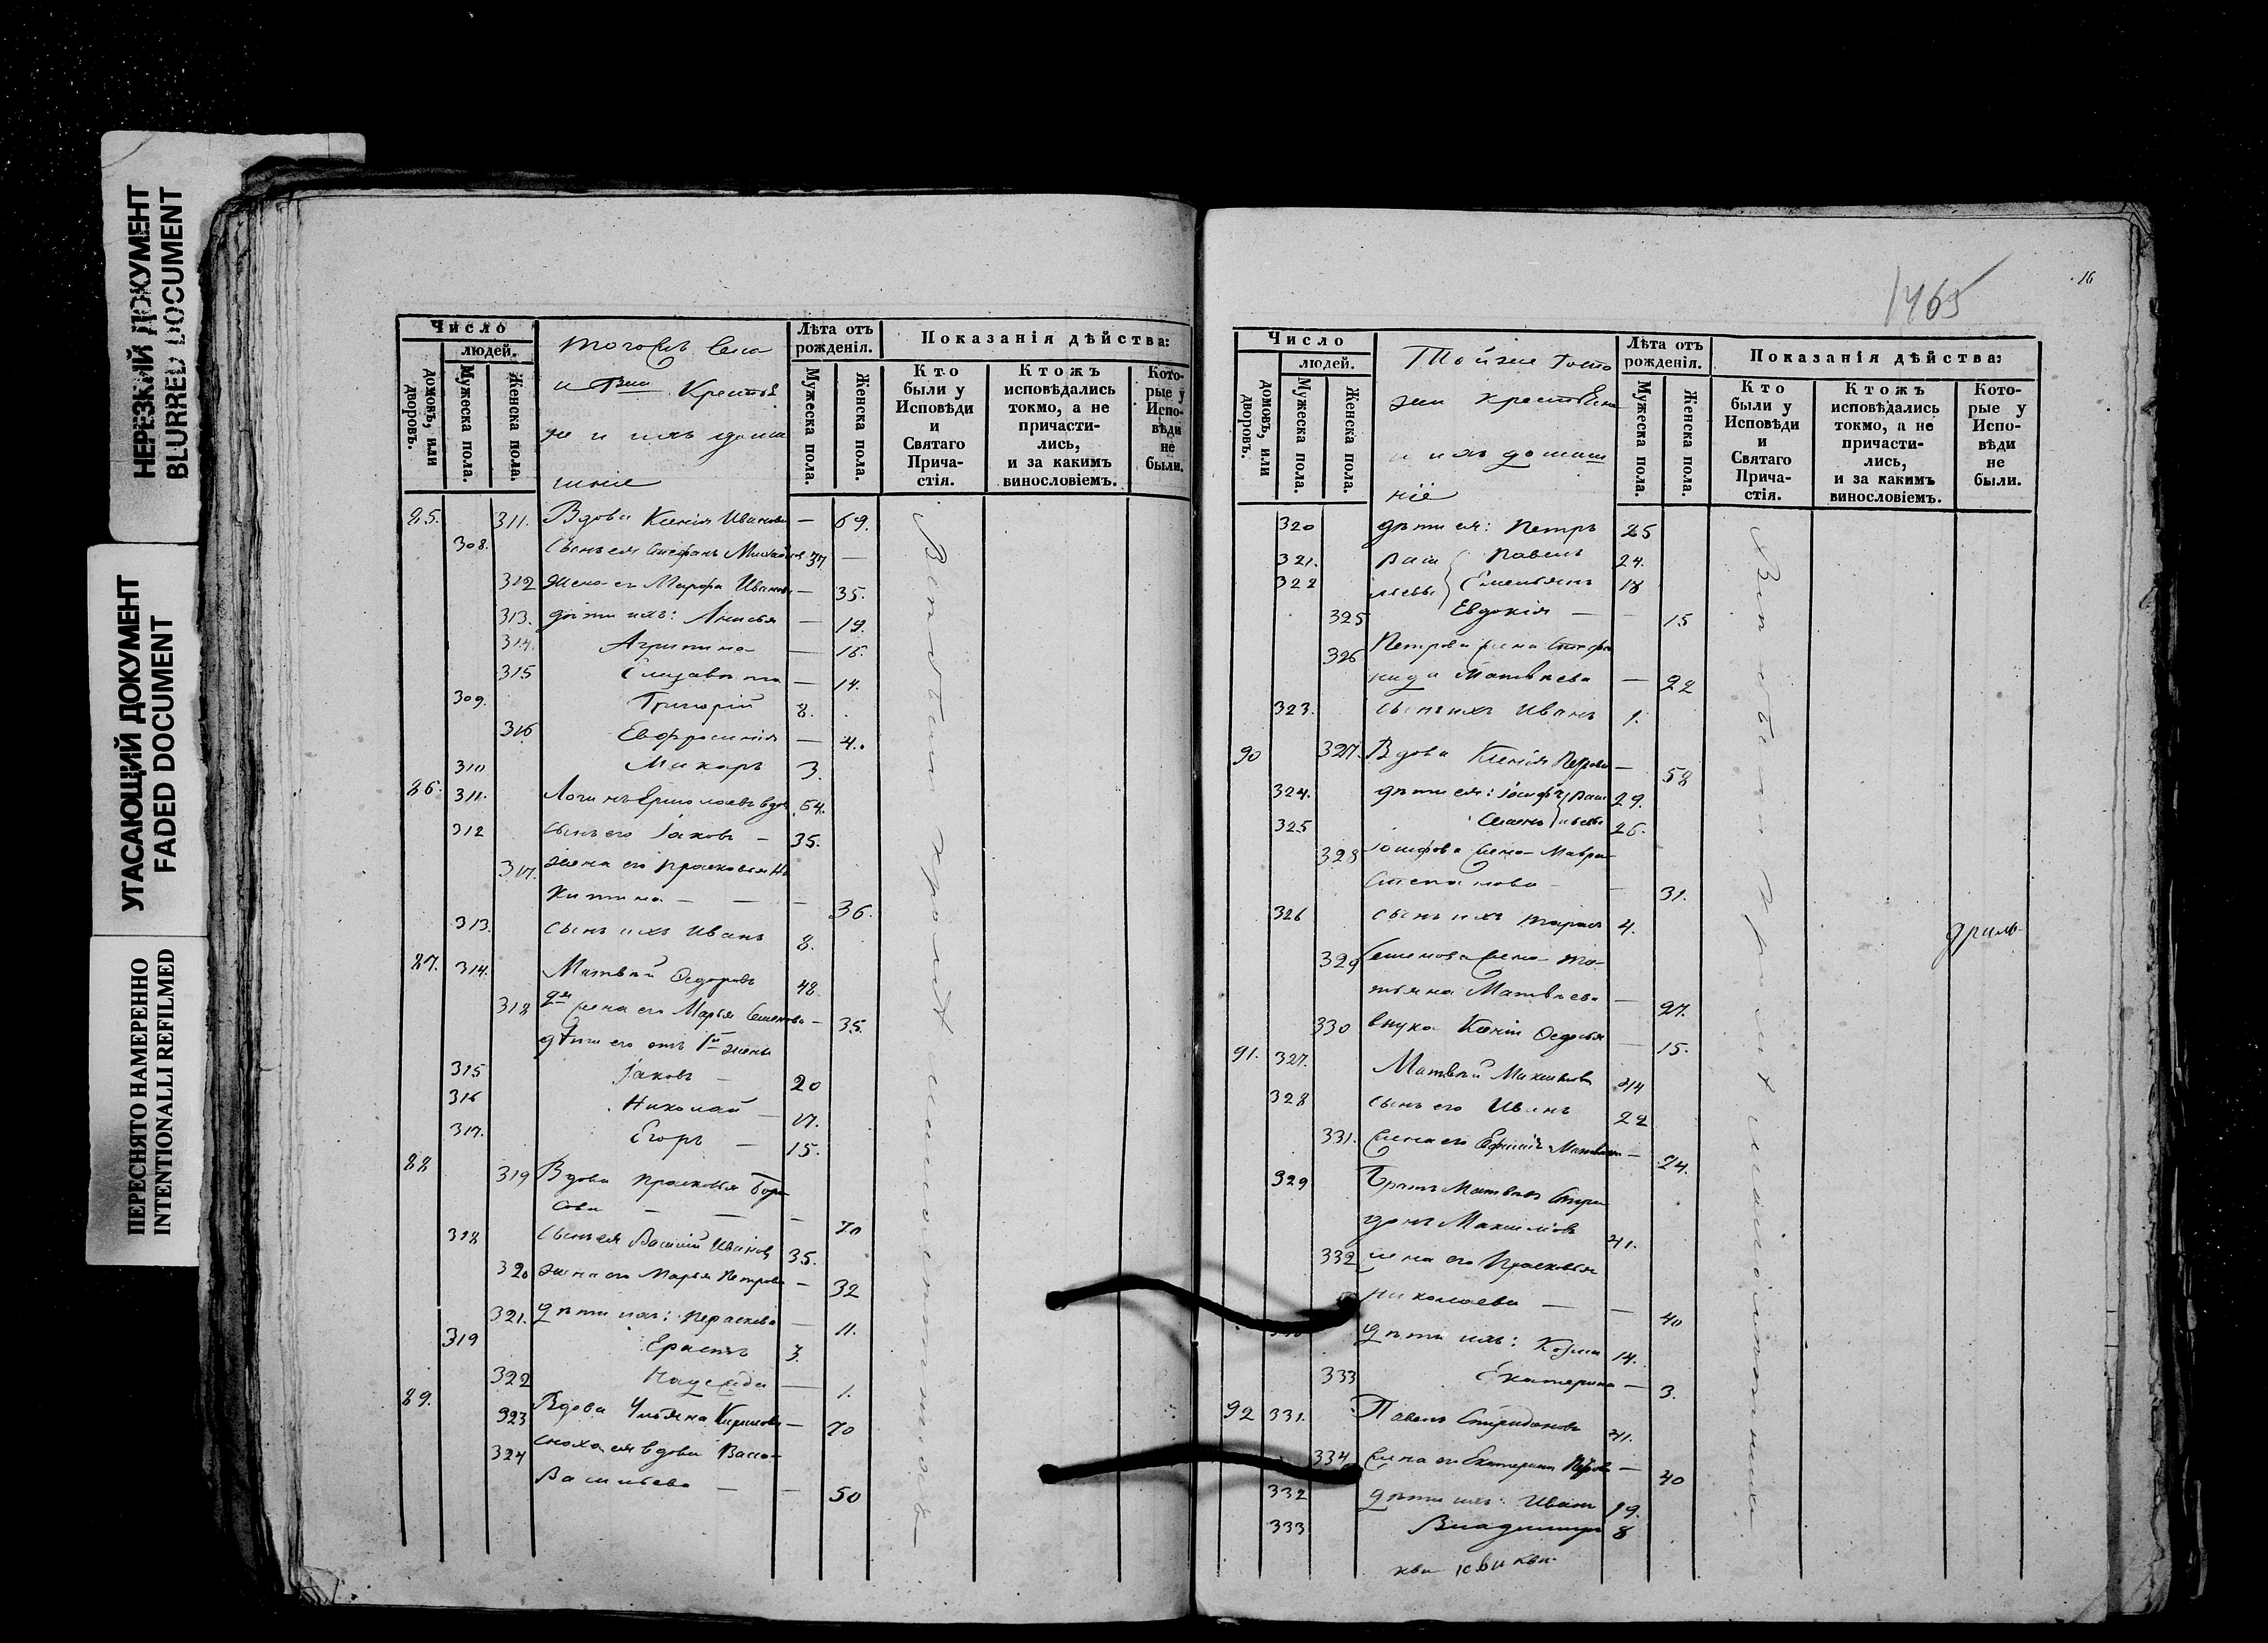 НЕРЕЗКИЙ ДОКУМЕНТ
BLURRED DOCUMENT
УГАСАЮЩИЙ ДОКУМЕНТ
FADED DOCUMENT
ПЕРЕСНЯТО НАМЕРЕННО
INTENTIONALLI REFILMED
Число
людей.
домовъ, или дворовъ.
Мужеска пола.
Женска пола.
Лѣта отъ рожденія.
Мужеска пола.
Женска пола.
Показанія дѣйства:
Кто были у Исповѣди и Святаго Прича-стія.
Ктожъ исповѣдались токмо, а не причасти-лись, и за какимъ винословіемъ.
Кото-рые у Испо-вѣди не были.
25. 311. Вдова Ксенія Иванова — 69.
308. сынъ ея Стефанъ 37 —
312 жена его Марфа Иванова — 35.
313. дѣти ихъ: Анисья — 19.
314. Агрипина — 16.
315 Елизавета — 14.
309. Григорій 8.
316 Евфросинія — 4.
310 Макаръ 3.
26. 311. Логинъ Ермолаевъ вдов 54.
312 сынъ его Іаковъ — 35.
317. жена его Прасковья Ни
китина — — — 36.
313. сынъ ихъ Иванъ 8.
27. 314. Матвѣй Ѳедоровъ 48
318 жена его Марья Семенова — 35.
дѣти его отъ 1й жены
315 Іаковъ — 20
316 Николай — 17.
317. Егоръ — 15.
28 319 Вдова Прасковья Бори
сова — — — 70
318 сынъ ея Василій Ивановъ 35.
320 жена его Марья Петрова — 32
321. дѣти ихъ: Параскева — 11.
319 Ерастъ 3.
322 Надежда — 1.
29. 323 Вдова Ульяна Кирилова — 70
324 сноха ея вдова Васса
Васильева — — 50
1465
16
Число
людей.
домовъ, или дворовъ.
Мужеска пола.
Женска пола.
Тойже
крестьяне
и ихъ домаш
ніе
Лѣта отъ рожденія.
Мужеска пола.
Женска пола.
Показанія дѣйства:
Кто были у Исповѣди и Святаго Прича-стія.
Ктожъ исповѣдались токмо, а не причасти-лись, и за какимъ винословіемъ.
Кото-рые у Испо-вѣди не были.
320 дѣти ея: Петръ 25
321. Павелъ 24.
322 Емельянъ 18
325 Евдокія — — 15
326 Петрова жена Стефа
нида Матвѣева — 22
323. сынъ ихъ Иванъ 1.
90 327. Вдова Ксенія Петрова — 58
324. дѣти ея: Іосифъ 29.
325 Семенъ 26.
328 Іосифова жена Мавра
Степанова — — 31.
326 сынъ ихъ Тарасъ 4.
329 Семенова жена Та
тьяна Матвѣева — 27.
330 внука Ксеніи Ѳедосья — 15.
91. 327. Матвѣй Максимовъ 44
328 сынъ его Иванъ 22
331. жена его — 24.
329 Братъ Матвѣевъ Спири
донъ Максимовъ 41.
332 жена его Прасковья
Николаева — — 40
дѣти ихъ: Козма 14.
333 Екатерина — 3.
92 331. Павелъ Спиридоновъ 41.
334 жена его Екатерина — 40
332 дѣти ихъ: Иванъ 19.
333 Владимиръ 8